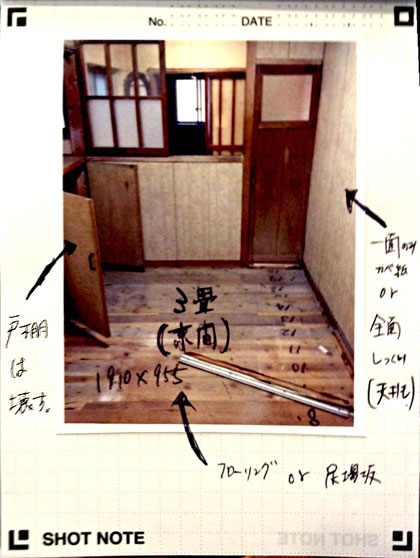 No. DATE
3畳
(京間)
1910×955
13
12
11
10
8
戸棚
は
壊す。
一面のみ
カベ紙
or
全面
しっくい
(天井も)
フローリング or 足場板
SHOT NOTE